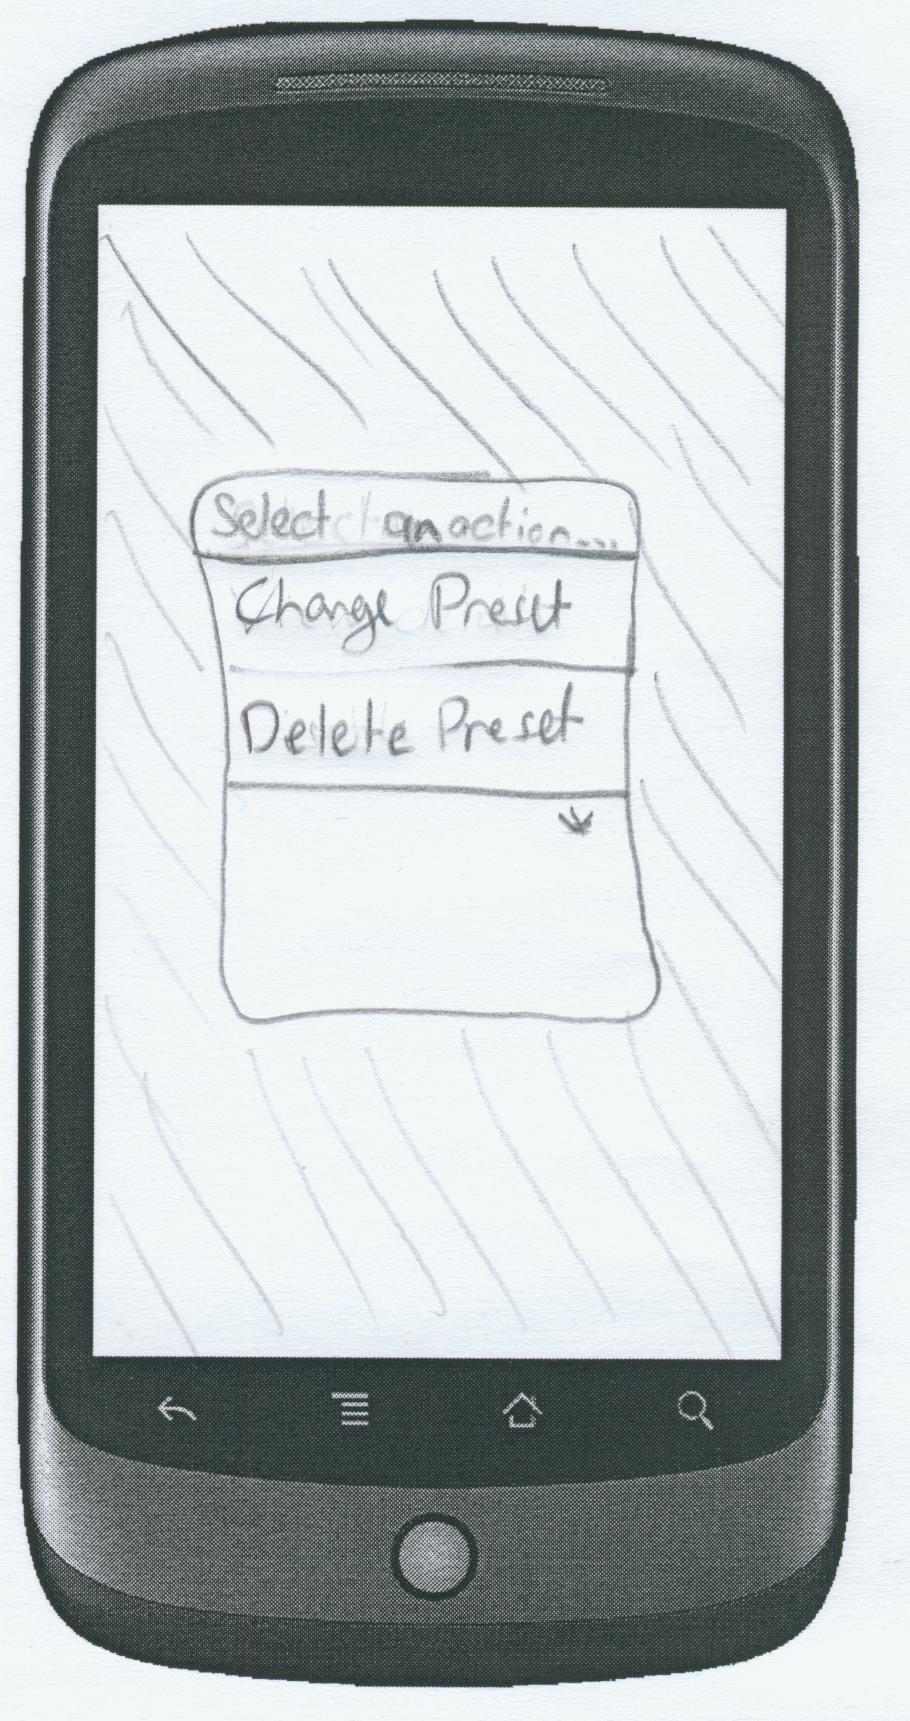 Select an action...
Change Preset
Delete Preset